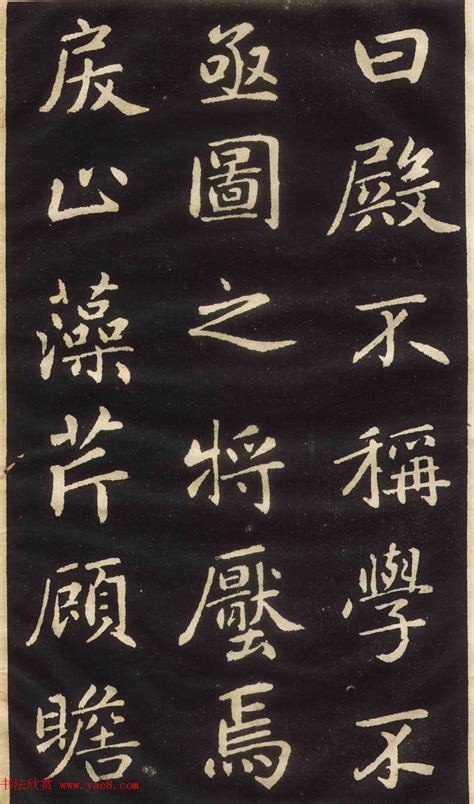 曰殿不稱學不
亟圖之將壓焉
戾止藻芹顧瞻
书法欣赏 www.yac8.com